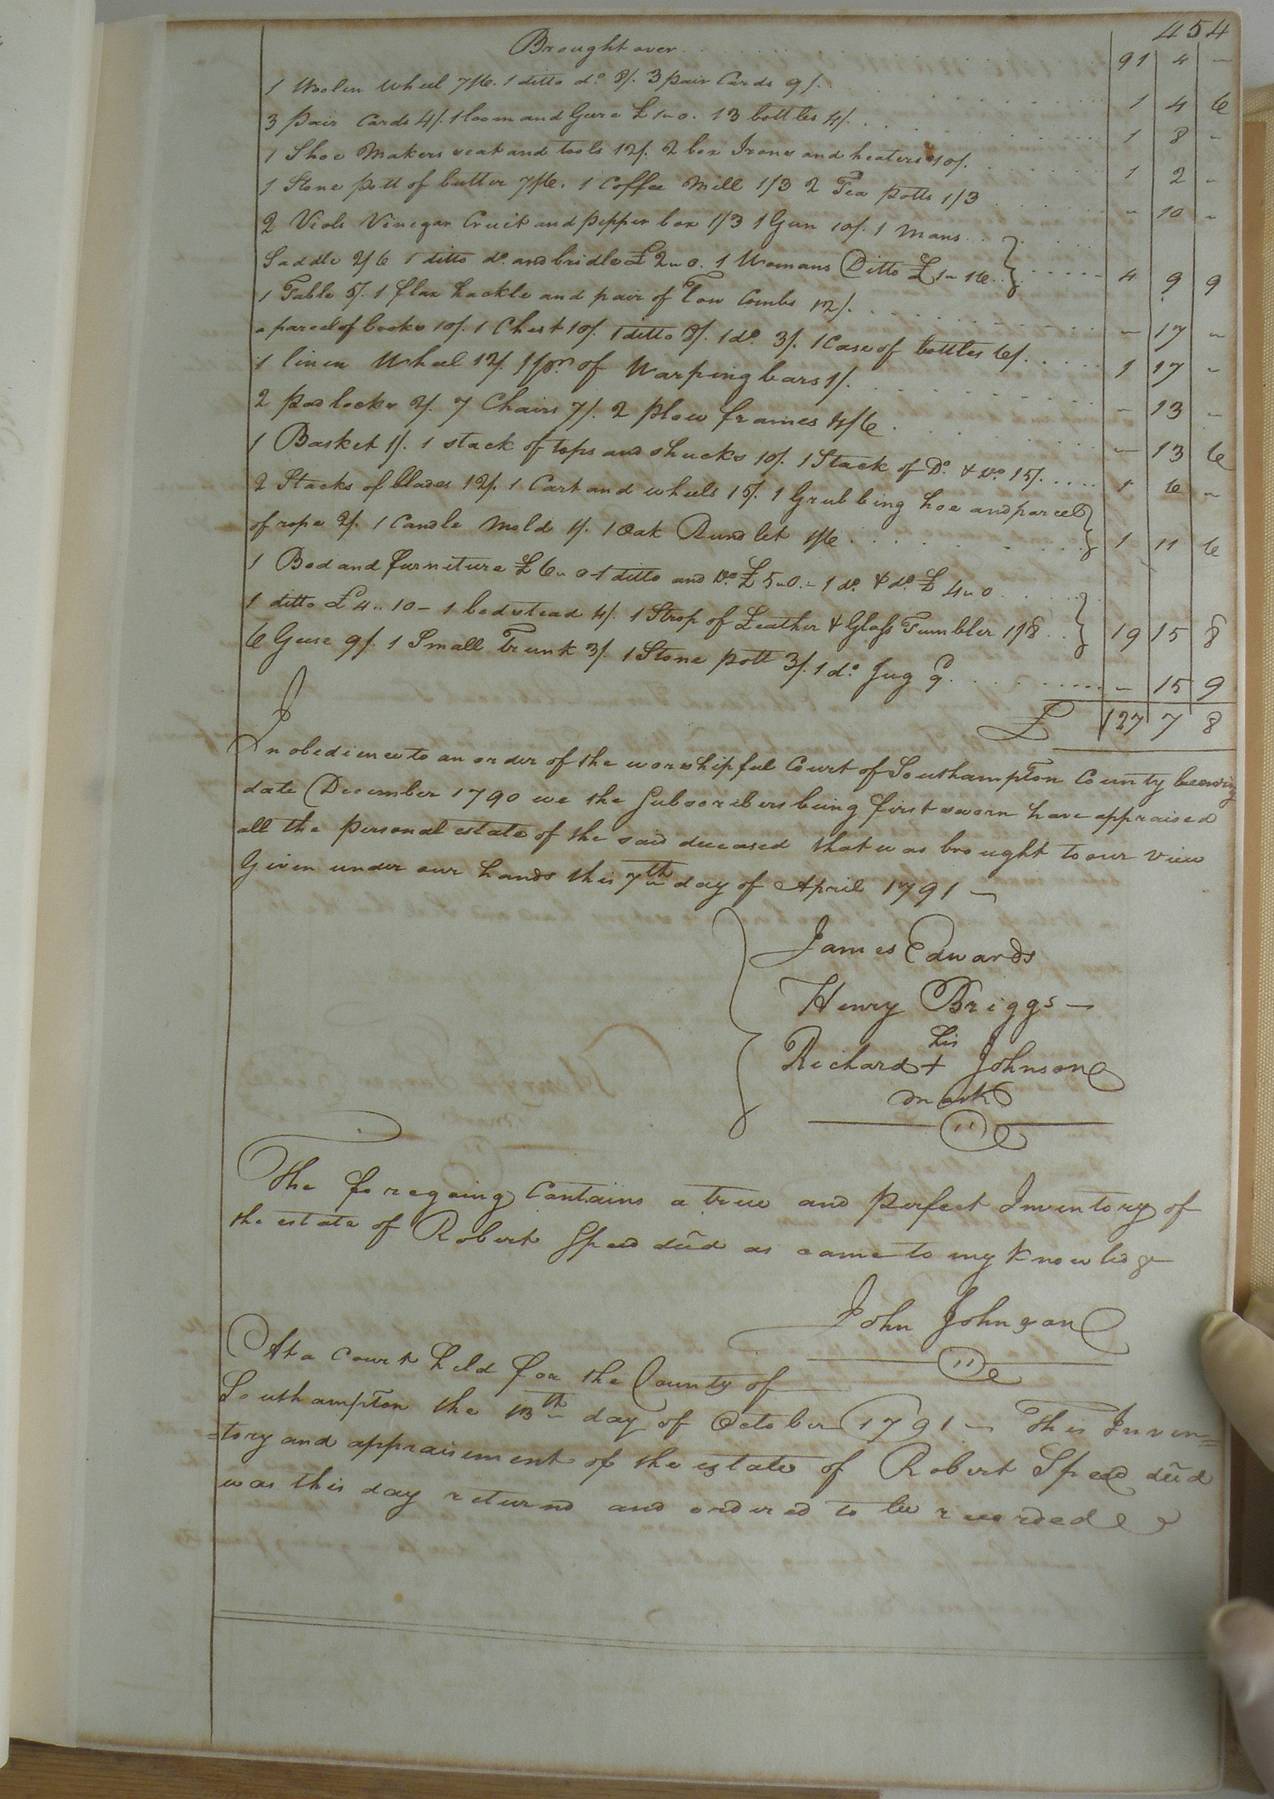 454
Brought over 91 4 -
1 Woolen Wheel 7/6. 1 ditto do. 8/. 3 pair Cards 9/. 1 4 6
3 pair Cards 4/. 1 loom and Geere £1-0. 13 bottles 4/. 1 8 -
1 Shoe Makers seat and tools 12/. 2 box Irons and heaters 10/. 1 2 -
1 Stone pott of butter 7/6. 1 Coffee Mill 1/3 2 Tea potts 1/3 - 10 -
2 Viols Vinegar Cruit and pepper box 1/3 1 Gun 10/. 1 Mans
Saddle 2/6 1 ditto do. and bridle £2-0. 1 Womans Ditto £1-16 4 9 9
1 Table 5/. 1 flax hackle and pair of Tow Combs 12/. - 17 -
a parcel of books 10/. 1 Chest 10/. 1 ditto 8/. 1 do. 3/. 1 Case of bottles 6/. 1 17 -
1 linen Wheel 12/. 1 pr. of Warping bars 1/. - 13 -
2 padlocks 2/. 7 Chairs 7/. 2 plow frames 4/6 - 13 6
1 Basket 1/. 1 stack of tops and shucks 10/. 1 Stack of Do. & Do. 15/. 1 6 -
2 Stacks of blades 12/. 1 Cart and wheels 15/. 1 Grubbing hoe and parcel
of rope 2/. 1 Candle Mold 1/. 1 Oak Rundlet 1/6 1 11 6
1 Bed and furniture £6-0 1 ditto and Do. £5-0- 1 do. & do. £4-0
1 ditto £4-10- 1 bedstead 4/. 1 Strop of Leather & Glass Tumbler 1/8 19 15 8
6 Geese 9/. 1 Small Trunk 3/. 1 Stone pott 3/. 1 do. Jug 9 - 15 9
£ 127 7 8
In obedience to an order of the worshipful Court of Southampton County bearing
date December 1790 we the Subscribers being first sworn have appraised
all the personal estate of the said deceased that was brought to our view
Given under our hands this 7th day of April 1791 -
James Edwards
Henry Briggs -
his
Richard + Johnson
mark
The foregoing Contains a true and perfect Inventory of
the estate of Robert Speed decd as came to my Knowledge
John Johnson
At a Court held for the County of
Southampton the 13th day of October 1791 - This Inven=
=tory and appraisement of the estate of Robert Speed decd
was this day returnd and ordered to be recorded